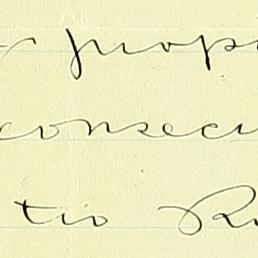 props
consecu
tio Ru